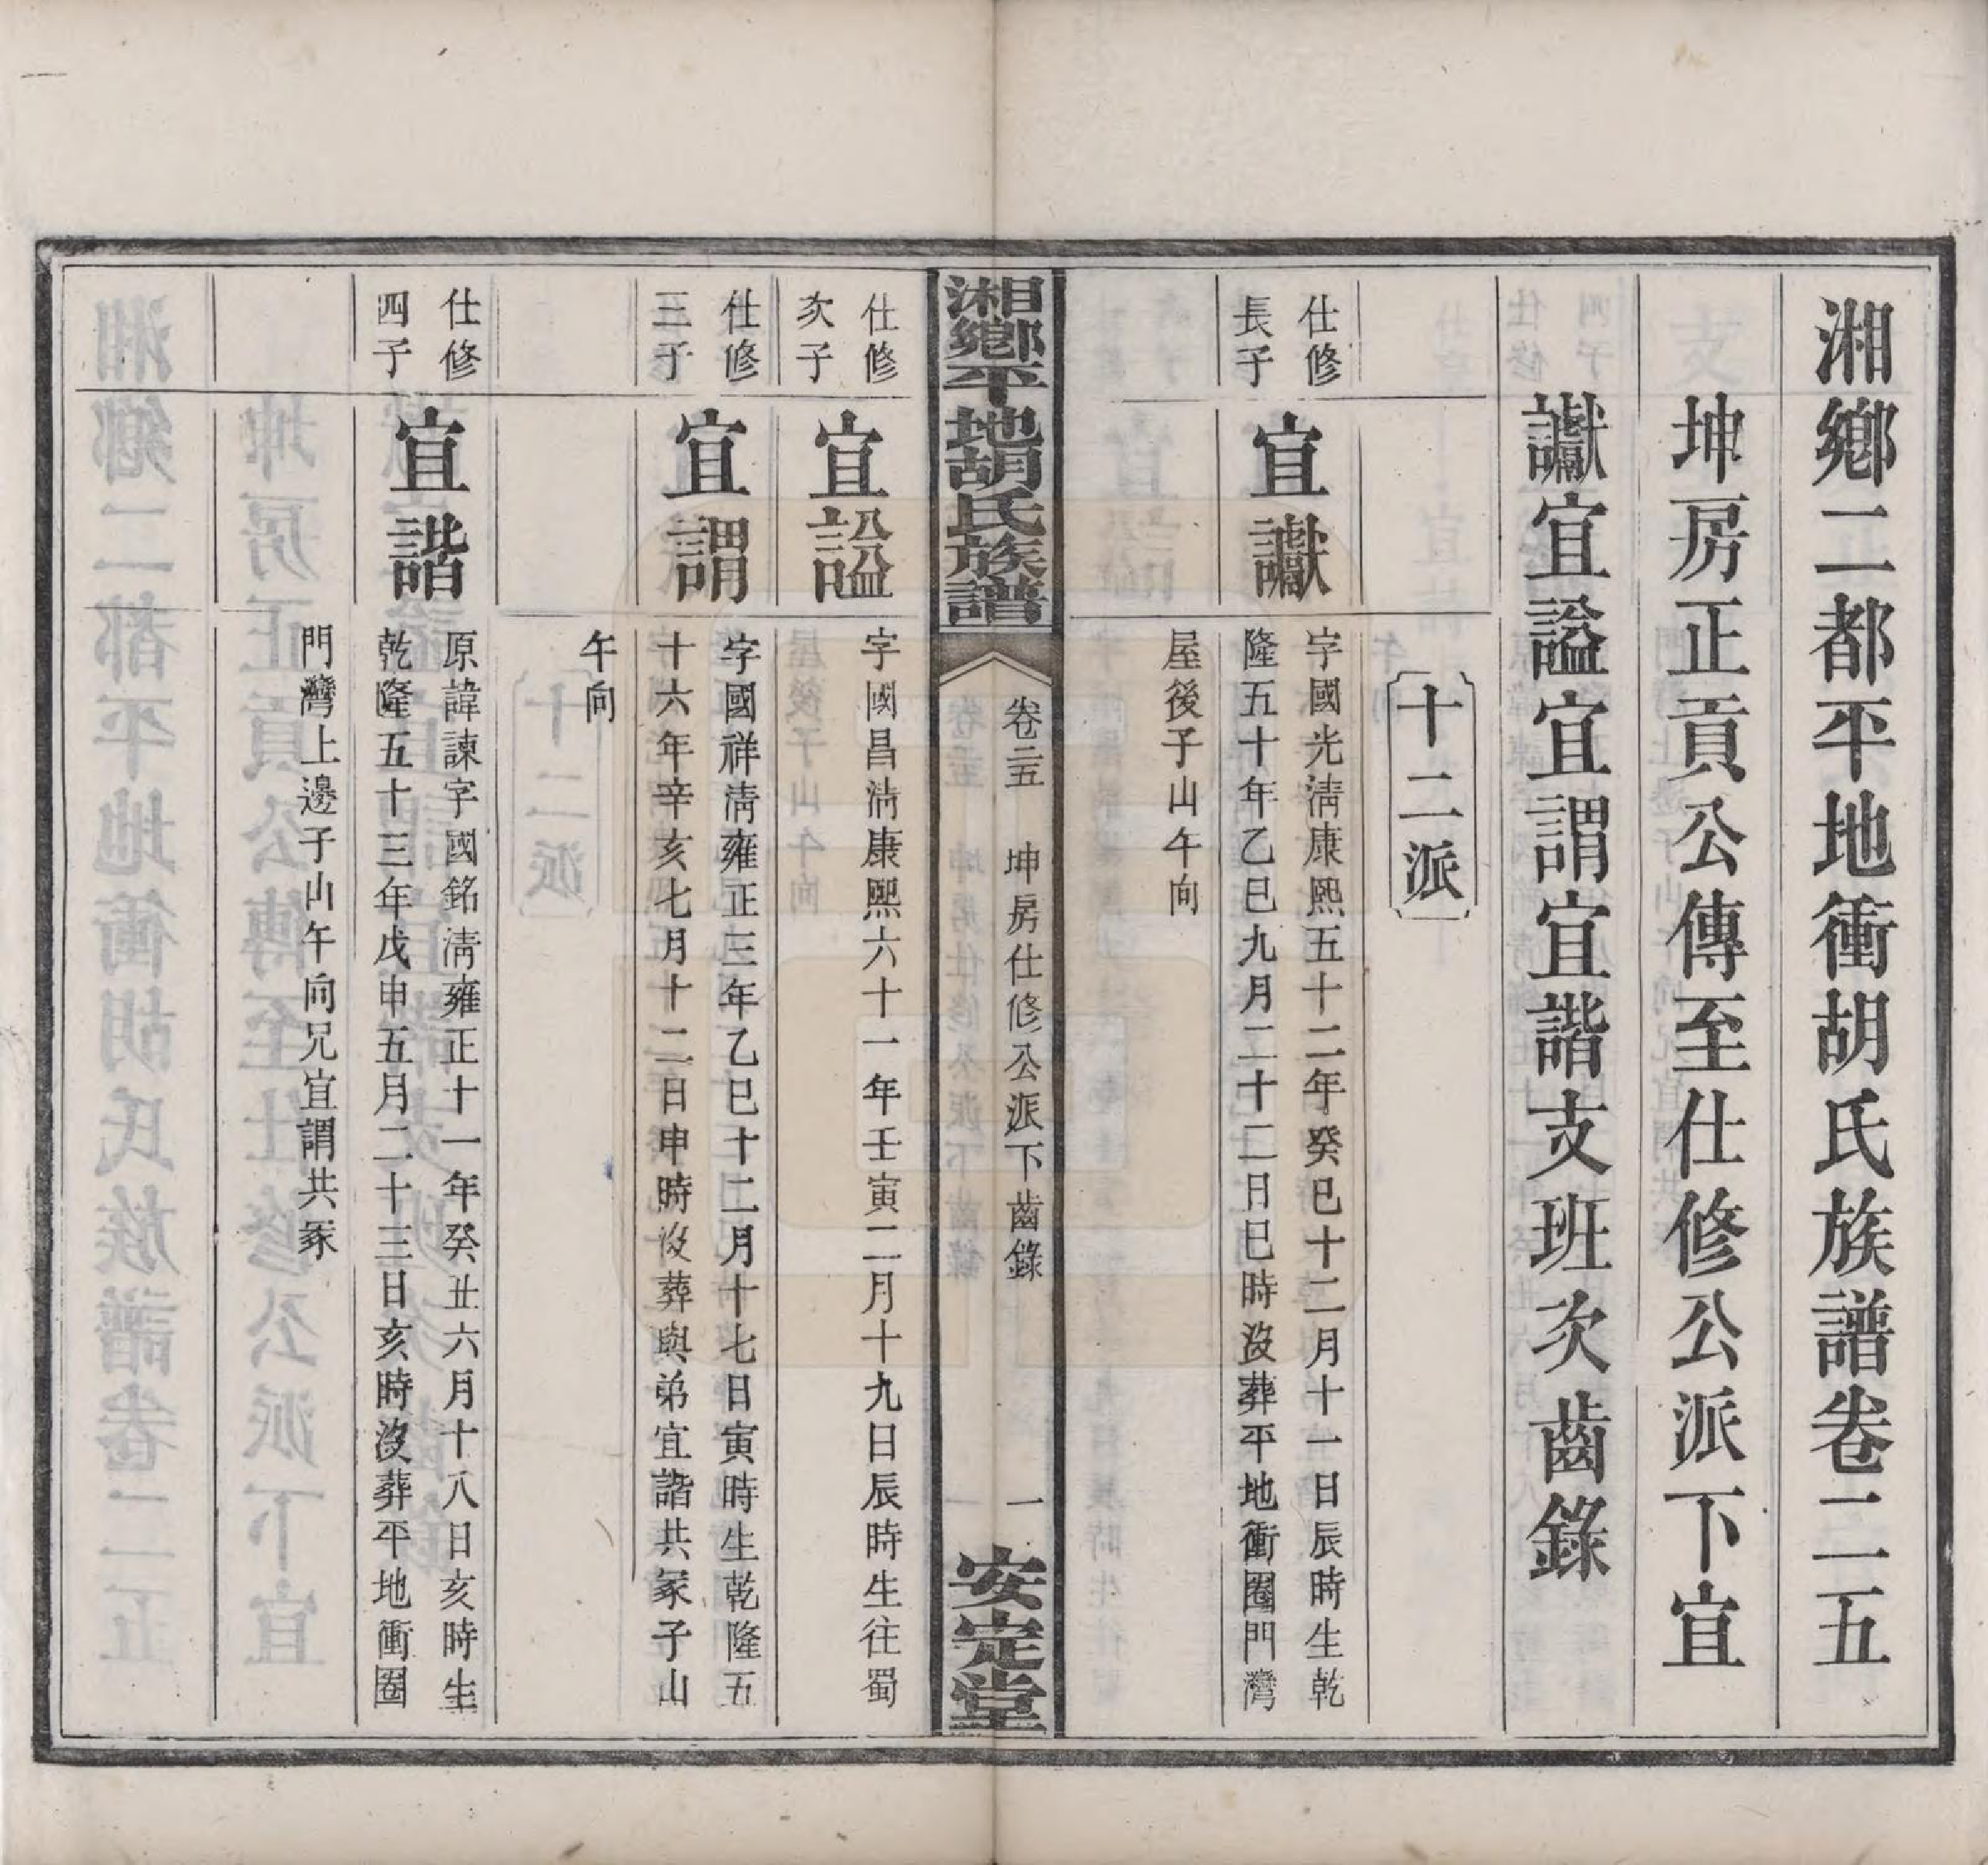 湘鄉二都平地衝胡氏族譜卷二五
坤房正貢公傳至仕修公派下宜
讞宜謚宜謂宜諧支班次齒錄
十二派
仕修
長子
宜讞
字國光淸康熙五十二年癸巳十二月十一日辰時生乾
隆五十年乙巳九月二十二日巳時没葬平地衝圈門灣
屋後子山午向
湘鄉平地胡氏族譜
卷二五
坤房仕修公派下齒錄
一
安定堂
仕修
次子
宜謚
字國昌淸康熙六十一年壬寅二月十九日辰時生往蜀
仕修
三子
宜謂
字國祥淸雍正三年乙巳十二月十七日寅時生乾隆五
十六年辛亥七月十二日申時没葬與弟宜諧共冢子山
午向
仕修
四子
宜諧
原諱諫字國銘淸雍正十一年癸丑六月十八日亥時生
乾隆五十三年戊申五月二十三日亥時没葬平地衝圈
門灣上邊子山午向兄宜謂共冢